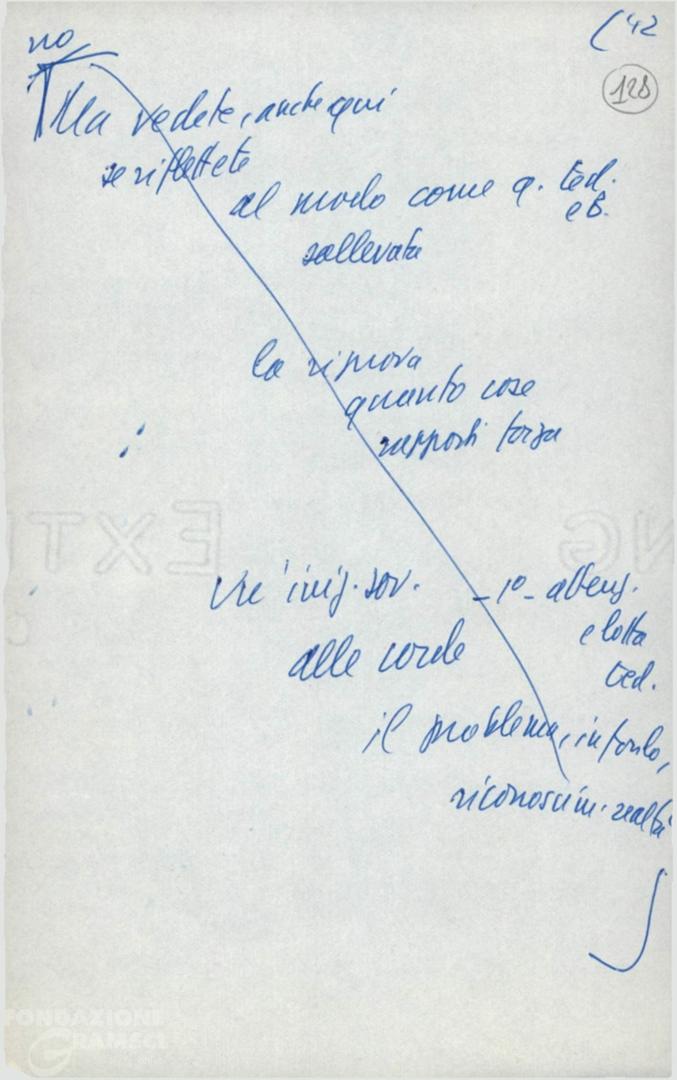 no
(42
128
Ma vedete, anche qui
se riflettete
al modo come q. ted.
e B.
sollevata
la riprova
quanto cose
rapporti forza
iniz. sov. – 1º –
e lotta
alle corde
ted.
il problema, in fondo,
riconoscim. realtà
EXT
NG
FONDAZIONE
GRAMSCI